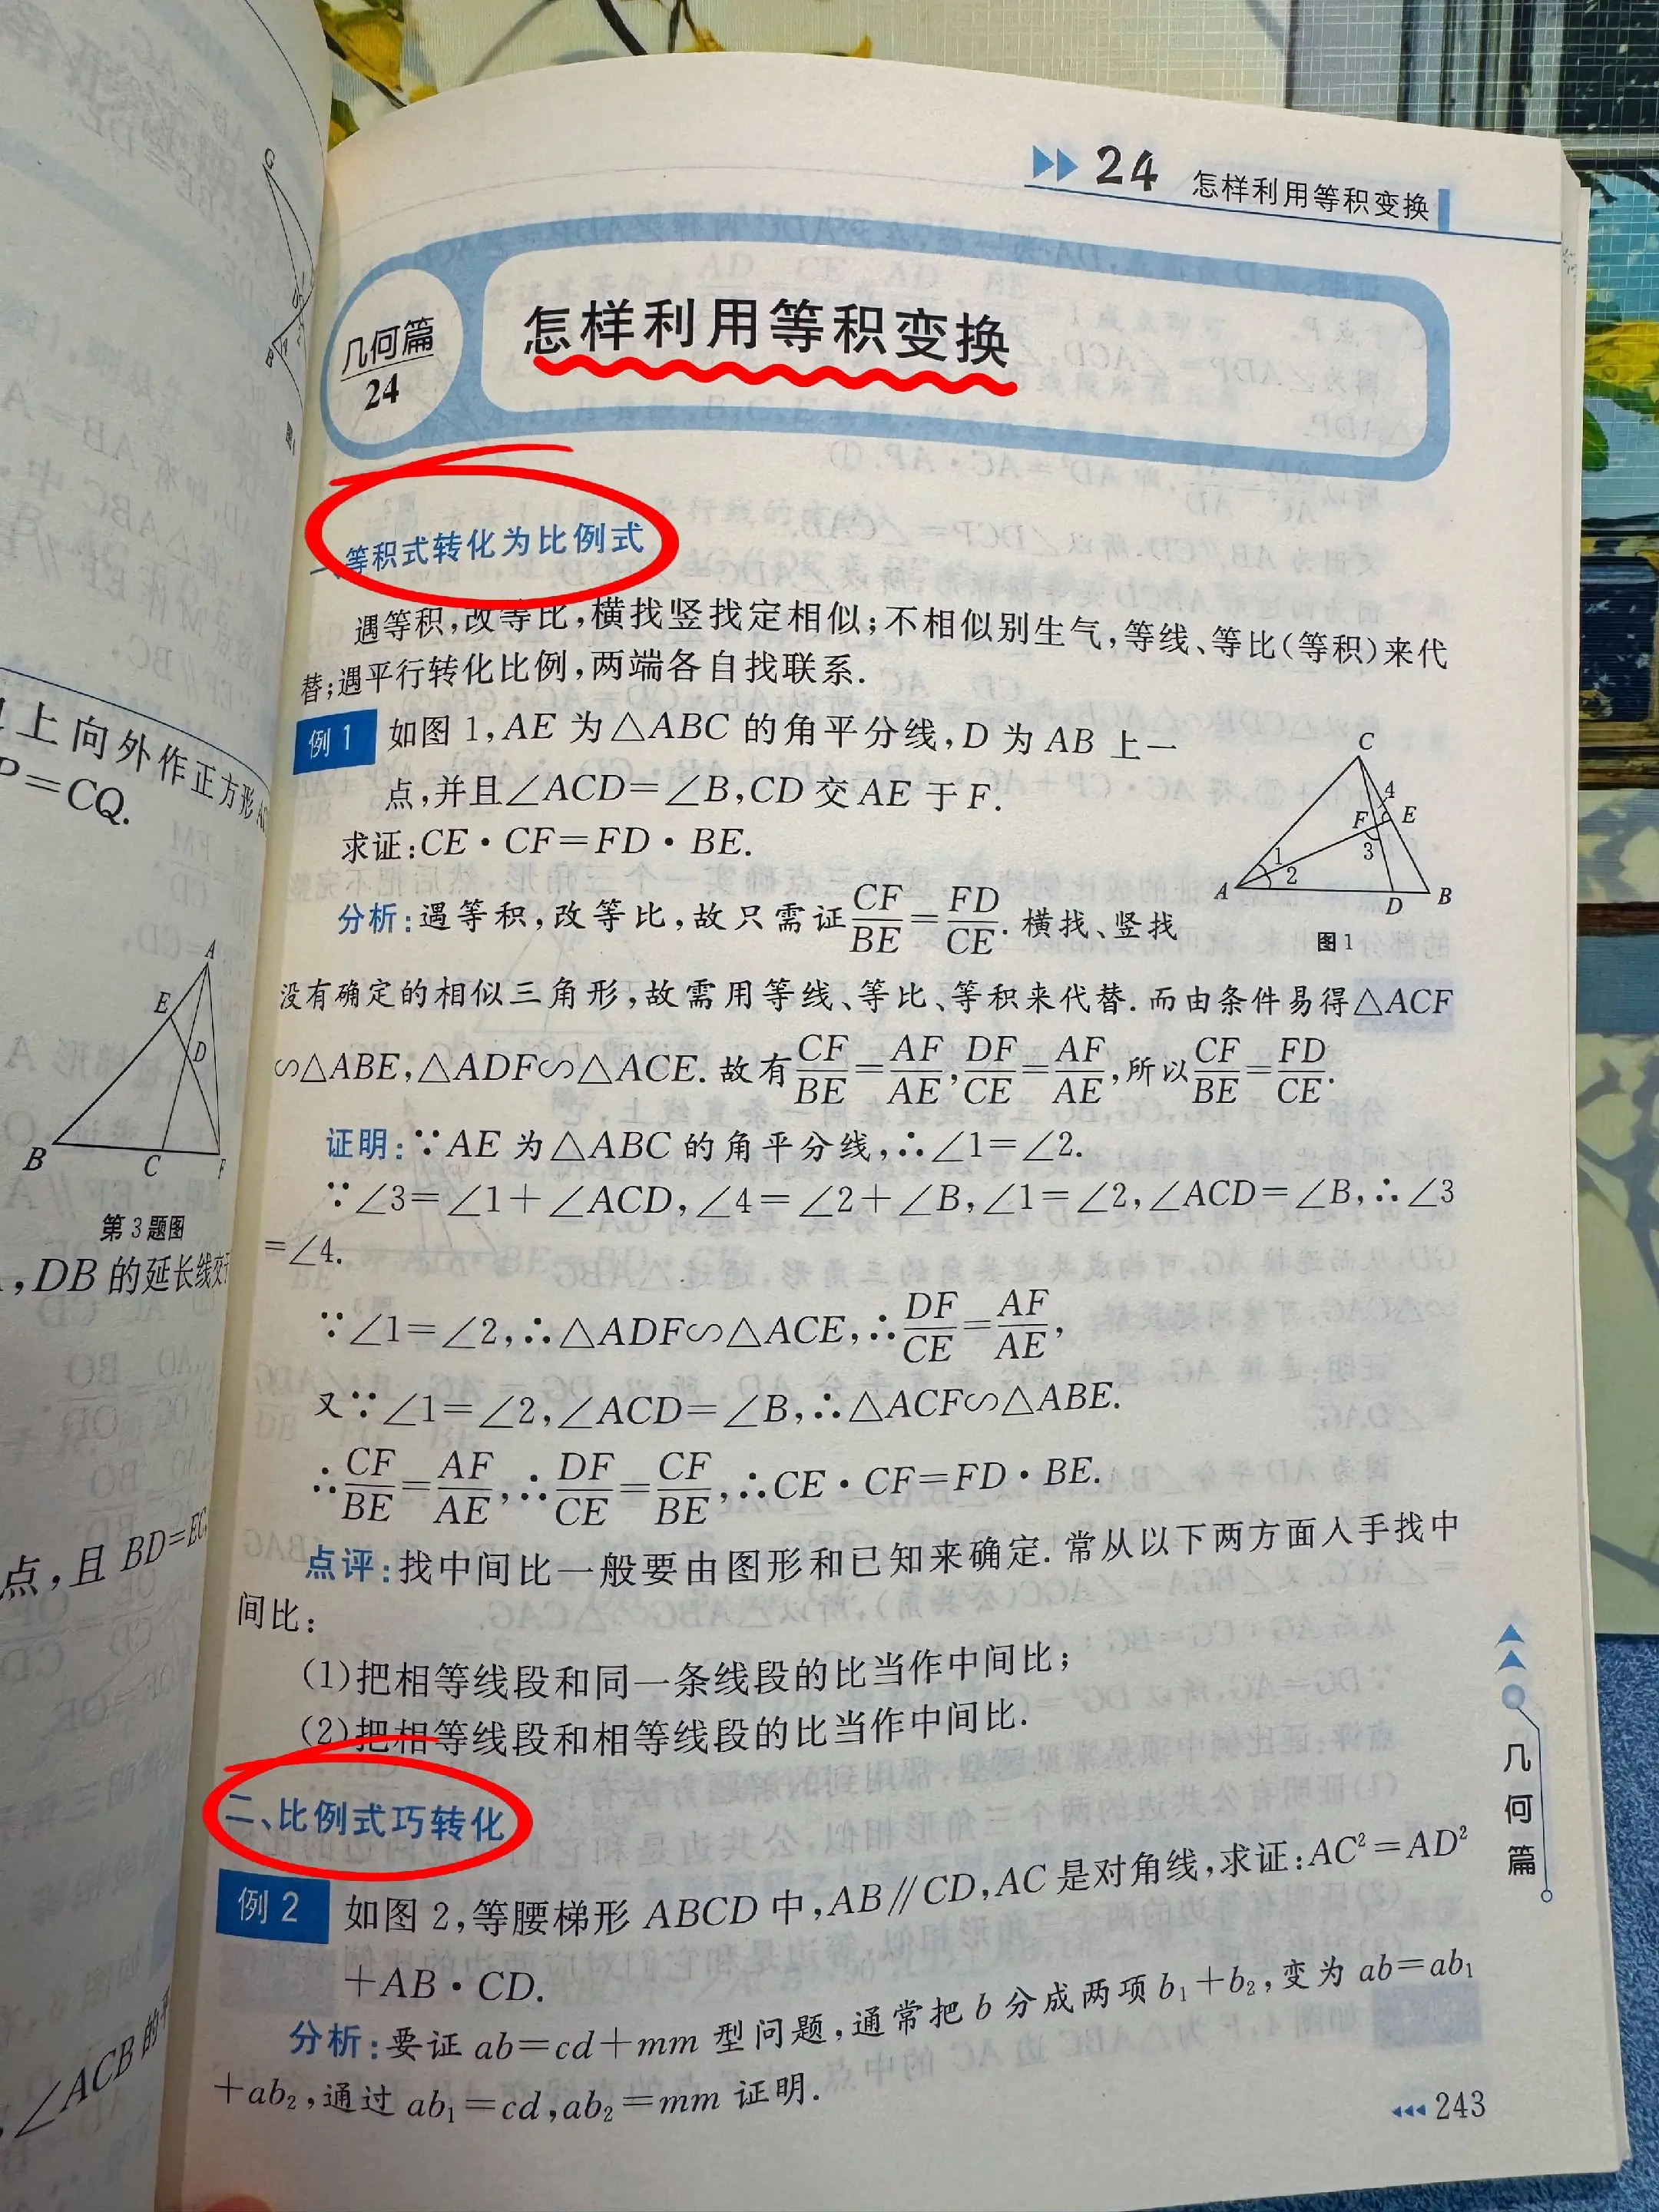 24 怎样利用等积变换
几何篇
24
怎样利用等积变换
一、等积式转化为比例式
遇等积,改等比,横找竖找定相似;不相似别生气,等线、等比(等积)来代
替;遇平行转化比例,两端各自找联系.
例1 如图1,AE为△ABC的角平分线,D为AB上一
点,并且∠ACD=∠B,CD交AE于F.
求证:CE·CF=FD·BE.
C
4
F E
3
1
2
A D B
图1
分析:遇等积,改等比,故只需证CF/BE=FD/CE.横找、竖找
没有确定的相似三角形,故需用等线、等比、等积来代替.而由条件易得△ACF
∽△ABE,△ADF∽△ACE.故有CF/BE=AF/AE,DF/CE=AF/AE,所以CF/BE=FD/CE.
证明:∵AE为△ABC的角平分线,∴∠1=∠2.
∵∠3=∠1+∠ACD,∠4=∠2+∠B,∠1=∠2,∠ACD=∠B,∴∠3
=∠4.
∵∠1=∠2,∴△ADF∽△ACE,∴DF/CE=AF/AE,
又∵∠1=∠2,∠ACD=∠B,∴△ACF∽△ABE.
∴CF/BE=AF/AE,∴DF/CE=CF/BE,∴CE·CF=FD·BE.
点评:找中间比一般要由图形和已知来确定.常从以下两方面入手找中
间比:
(1)把相等线段和同一条线段的比当作中间比;
(2)把相等线段和相等线段的比当作中间比.
二、比例式巧转化
例2 如图2,等腰梯形ABCD中,AB∥CD,AC是对角线,求证:AC²=AD²
+AB·CD.
分析:要证ab=cd+mm型问题,通常把b分成两项b₁+b₂,变为ab=ab₁
+ab₂,通过ab₁=cd,ab₂=mm证明.
几何篇
243
上向外作正方形
P=CQ.
A
E
D
B C F
第3题图
,DB的延长线交于
点,且BD=EC
,∠ACB的平